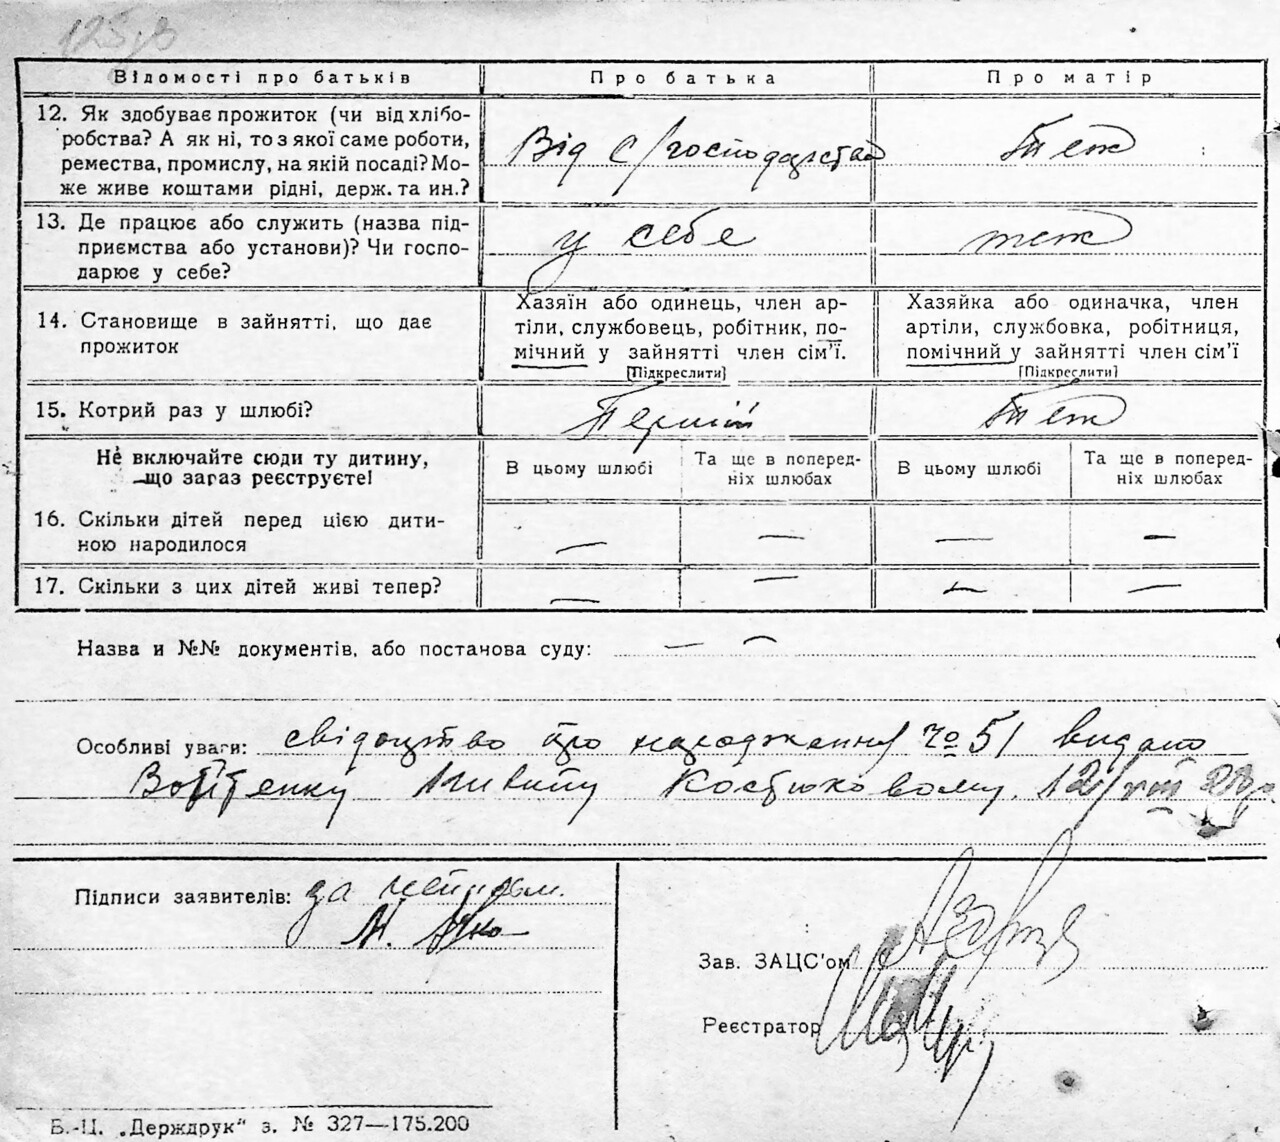 125зв
Відомості про батьків
Про батька
Про матір
12. Як здобуває прожиток (чи від хлібо-
робства? А як ні, то з якої саме роботи,
ремества, промислу, на якій посаді? Мо-
же живе коштами рідні, держ. та ин.?
Від с/господарства
Теж
13. Де працює або служить (назва під-
приємства або установи)? Чи госпо-
дарює у себе?
у себе
теж
14. Становище в зайнятті, що дає
прожиток
Хазяїн або одинець, член ар-
тіли, службовець, робітник, по-
мічний у зайнятті член сім'ї.
[Підкреслити]
Хазяйка або одиначка, член
артіли, службовка, робітниця,
помічний у зайнятті член сім'ї
[Підкреслити]
15. Котрий раз у шлюбі?
Перший
Теж
Не включайте сюди ту дитину,
що зараз реєструєте!
В цьому шлюбі
Та ще в поперед-
ніх шлюбах
В цьому шлюбі
Та ще в поперед-
ніх шлюбах
16. Скільки дітей перед цією дити-
ною народилося
— — — —
17. Скільки з цих дітей живі тепер?
— — — —
Назва и №№ документів, або постанова суду: — —
Особливі уваги: свідоцтво про народження № 51 видано
Костюковому. 12/VIII 28р.
Підписи заявителів: за неписьм.
Зав. ЗАЦС'ом
Реєстратор
В.-Ц. „Держдрук" з. № 327—175.200